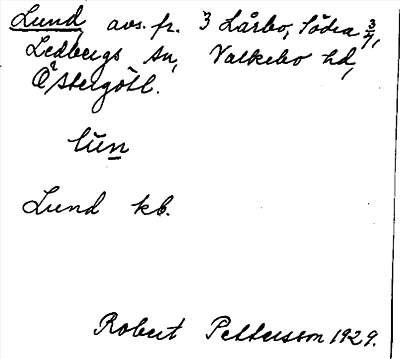 Lund, avs. fr. 3 Lårbo, Södra 3/4,
Ledbergs sn, Valkebo hd,
Östergötl.
lūn
Lund kb.
Robert Pettersson 1929.